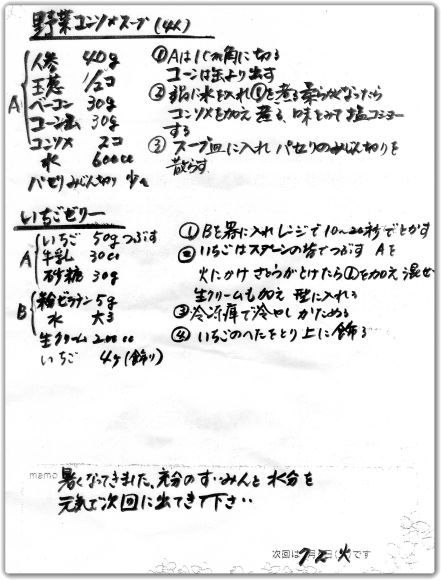 野菜コンソメスープ (4人)
A
人参 40g
玉葱 1/2コ
ベーコン 30g
コーン缶 30g
コンソメ 2コ
水 600cc
パセリみじん切り 少々
①Aは1cm角に切る
コーンは缶より出す
②鍋に水を入れ①を煮る柔らかくなったら
コンソメを加え煮る、味をみて塩コショー
する
③スープ皿に入れ パセリのみじん切りを
散らす
いちごゼリー
A
いちご 50gつぶす
牛乳 30cc
砂糖 30g
B
粉ゼラチン 5g
水 大3
生クリーム 200cc
いちご 4ケ(飾り)
①Bを器に入れレンジで10~20秒でとかす
②いちごはスプーンの背でつぶす Aを
火にかけ さとうがとけたら①を加え混ぜ
生クリームも加え 型に入れる
③冷凍庫で冷やしかためる
④いちごのへたをとり上に飾る
memo
暑くなってきました。充分のすいみんと水分を
元気で次回に出てき下さい
次回は 7 2 火 です